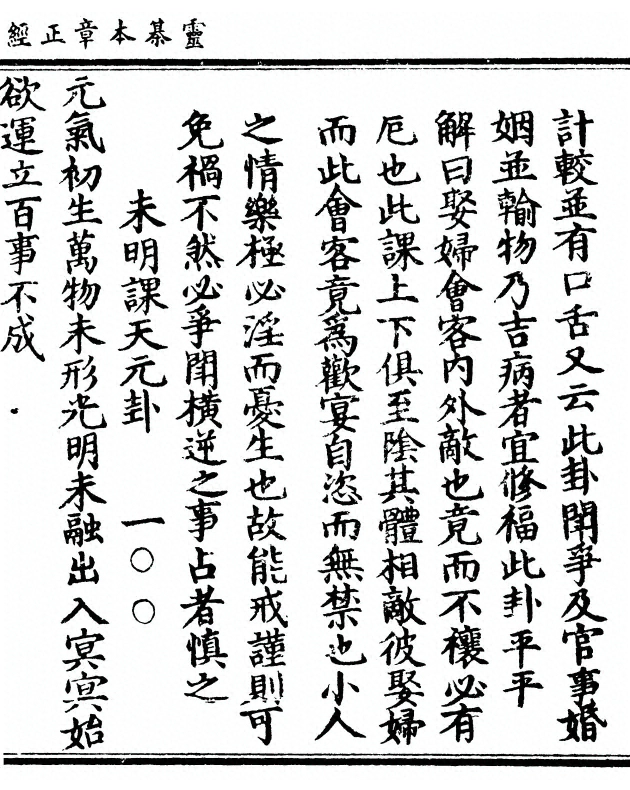 靈棊本章正經
計較並有口舌又云此卦鬪爭及官事婚
姻並輸物乃吉病者宜修福此卦平平
解曰娶婦會客内外敵也竟而不穰必有
厄也此課上下俱至陰其體相敵彼娶婦
而此會客竟爲歡宴自恣而無禁也小人
之情樂極必淫而憂生也故能戒謹則可
免禍不然必爭鬪橫逆之事占者慎之
未明課天元卦 一〇〇
元氣初生萬物未形光明未融出入冥冥始
欲運立百事不成